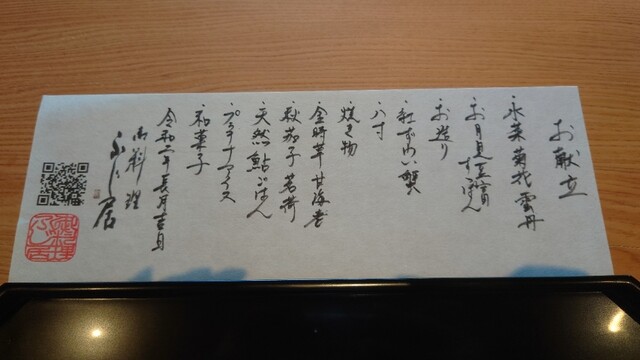 お献立
・水菜 菊花 雲丹
・お月見真蒸 すっぽん
・お造り
・紅ずわい蟹
・八寸
・焼き物
・金時草 甘海老
・秋茄子 茗荷
・天然鮎ごはん
・プラチナアイス
・和菓子
令和二年長月吉日
御料理
ふじ居